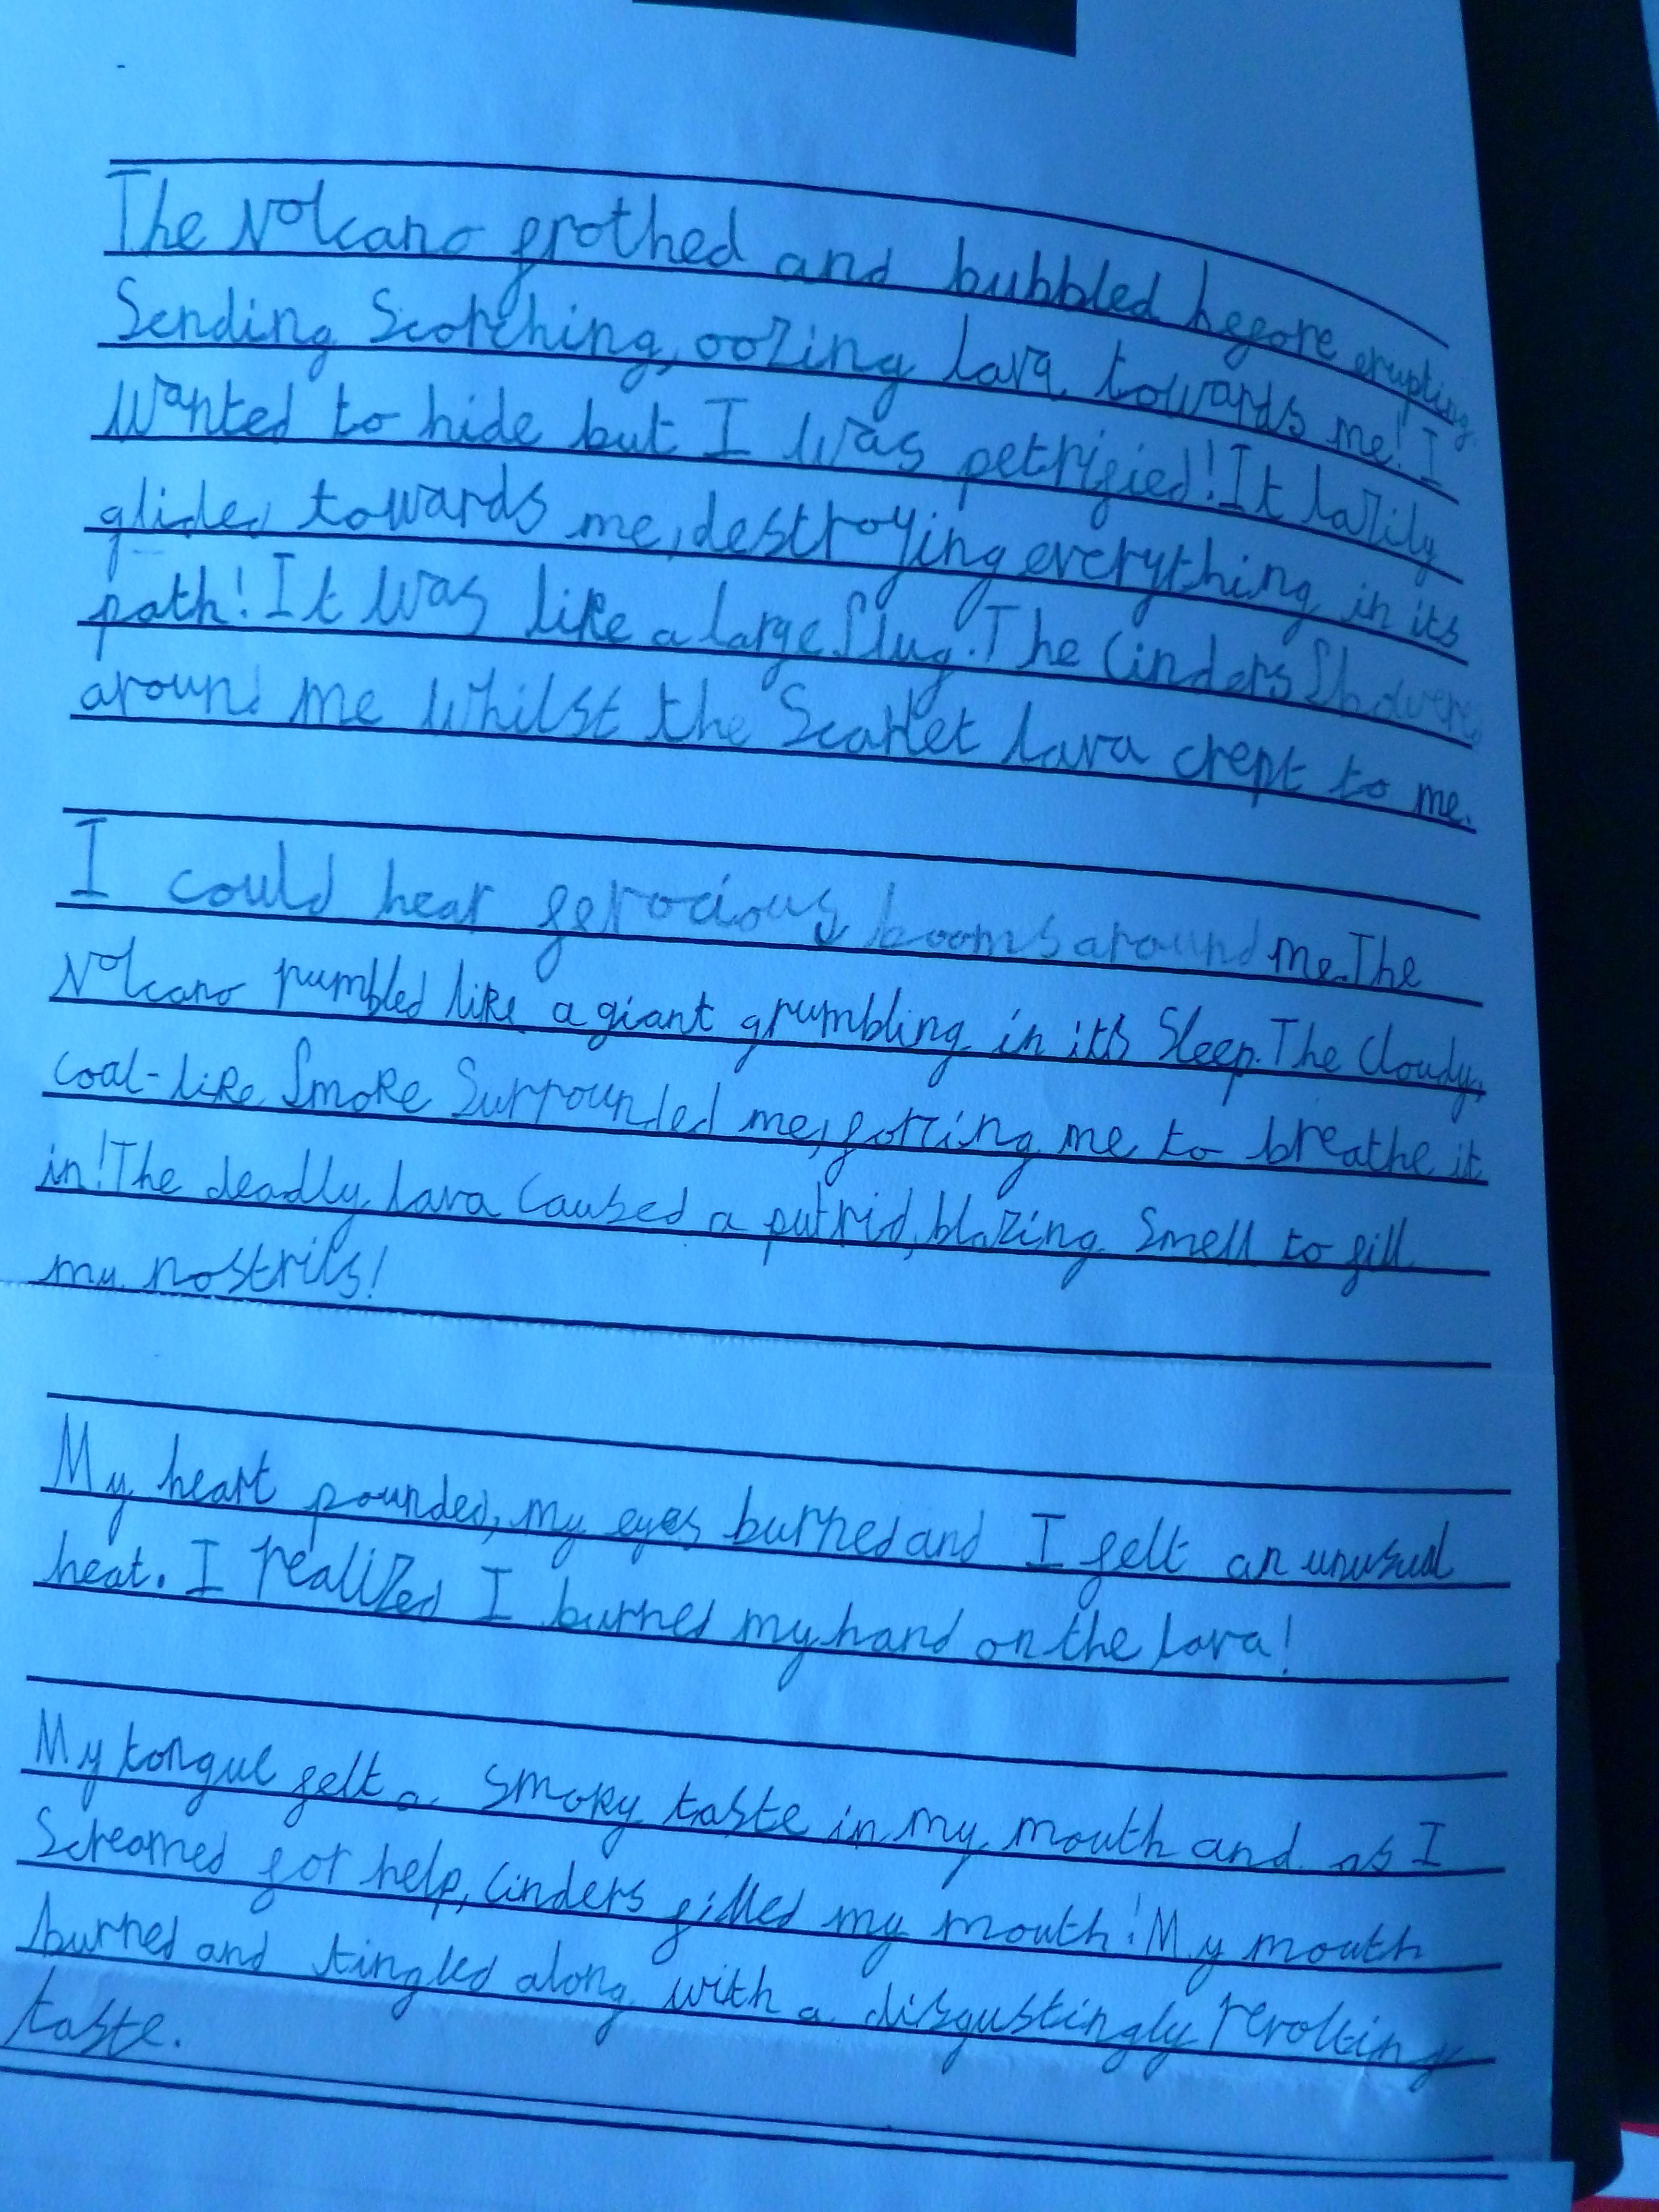 The volcano frothed and bubbled before erupting,
Sending Scorching, oozing lava towards me! I
wanted to hide but I was petrified! It lazily
glided towards me, destroying everything in its
path! It was like a large slug. The cinders showered
around me whilst the Scarlet lava crept to me.
I could hear ferocious booms around me. The
volcano rumbled like a giant grumbling in its Sleep. The cloudy,
coal-like smoke surrounded me, forcing me to breathe it
in! The deadly lava caused a putrid, blazing smell to fill
my nostrils!
My heart pounded, my eyes burned and I felt an unusual
heat. I realized I burned my hand on the lava!
My tongue felt a smoky taste in my mouth and as I
Screamed for help, cinders filled my mouth! My mouth
burned and tingled along with a disgustingly revolting
taste.